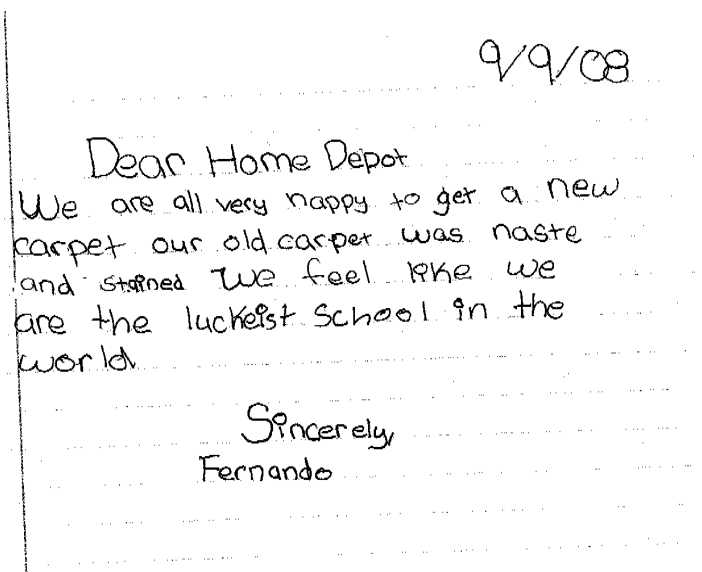 9/9/08
Dear Home Depot
We are all very happy to get a new
carpet our old carpet was naste
and stained We feel like we
are the luckeist School in the
world
Sincerely,
Fernando